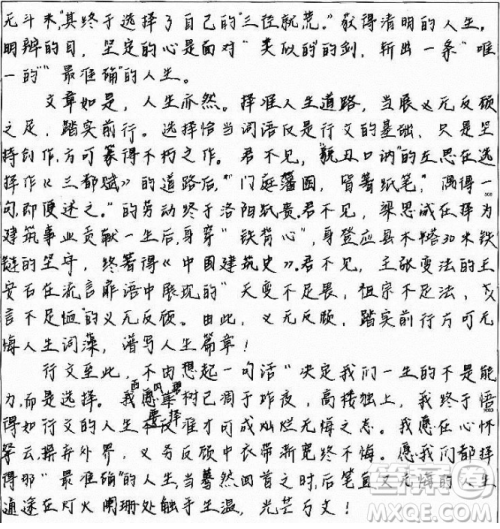 无斗米"其终于选择了自己的"三径就荒。"获得清明的人生。
明辨的目,坚定的心是面对"类似的"的剑,斩出一条"唯
一的""最准确"的人生。
文章如是,人生亦然。择准人生道路,当展义无反顾
之足,踏实前行。选择恰当词语仅是行文的基础,只是坚
持创作,方可篆得不朽之作。君不见,"貌丑口讷"的左思在选
择作《三都赋》的道路后,"门庭藩圊,皆著纸笔","偶得一
句,即便述之。"的劳动终于洛阳纸贵。君不见,梁思成在择为
建筑事业贡献一生后,身穿"铁背心",身登应县木塔30米铁
链的坚守,终著得《中国建筑史》。君不见,主张变法的王
安石在流言蜚语中展现的"天变不足畏,祖宗不足法,
言不足恤的义无反顾。由此,义无反顾,踏实前行方可无
悔人生词藻,谱写人生篇章!
行文至此,不由想起一句话"决定我们一生的不是能
力,而是选择。我愿西风碧树已凋于昨夜,高楼独上,我终于悟
得如行文的人生要择准才可成灿烂无悔之志。我愿在心怀
摒弃外界,义无反顾中衣带渐宽终不悔。愿我们都择
得那"最准确"的人生,当蓦然回首之时,后笔直又无悔的人生
通途在灯火阑珊处触手生温,光芒万丈!
答案圈
MXQE.COM